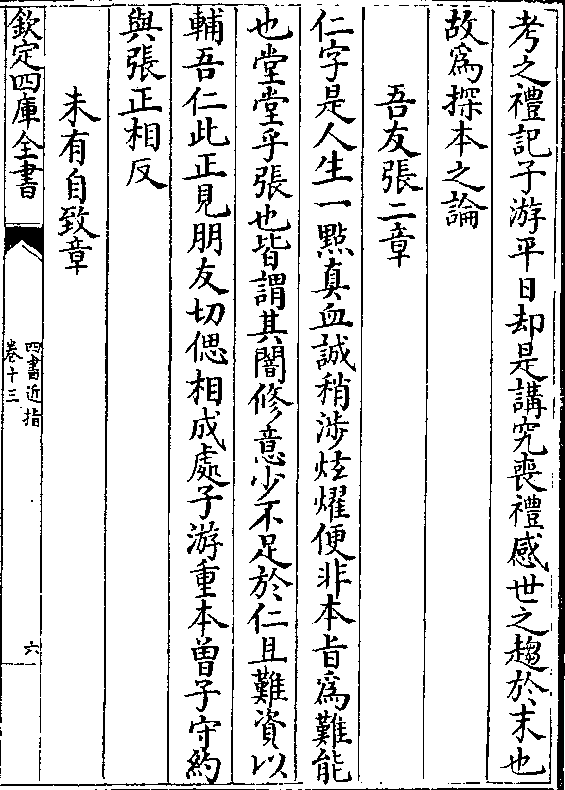 考之禮記子游平日却是講究喪禮感世之趨於末也
故為探本之論
吾友張二章
仁字是人生一點真血誠稍涉炫燿便非本旨為難能
也堂堂乎張也皆謂其闇修意少不足於仁且難資以
輔吾仁此正見朋友切偲相成處子游重本曽子守約
與張正相反
未有自致章
欽定四庫全書
四書近指
卷十三
六